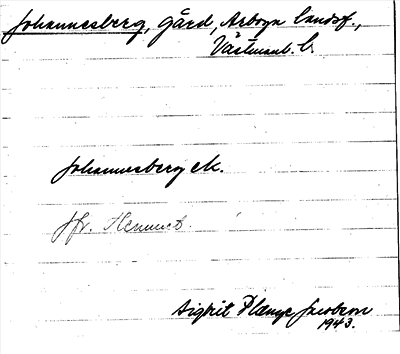 Johannesberg, gård, Arboga landsf.,
Västmanl. l.
Johannesberg ek.
Jfr. Hemmet.
Sigrit Plænge Jacobson
1943.